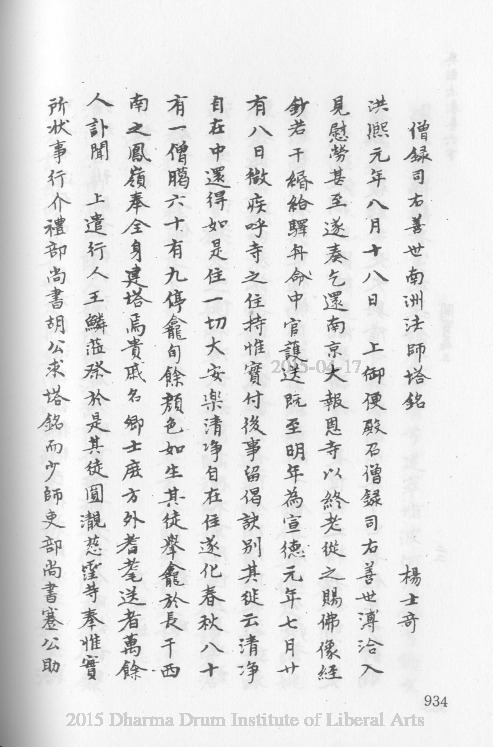 僧錄司右善世南洲法師塔銘　楊士奇
洪熙元年八月十八日　上御便殿召僧錄司右善世溥洽入
見慰勞甚至遂奏乞還南京大報恩寺以終老從之賜佛像經
鈔若干緡給驛舟命中官護送既至明年為宣德元年七月廿
有八日微疾呼寺之住持惟實付後事留偈訣別其徒云清淨
自在中還得如是住一切大安樂清淨自在住遂化春秋八十
有一僧臈六十有九停龕旬餘顏色如生其徒舉龕於長干西
南之鳳嶺奉全身建塔焉貴戚名卿士庶方外耆耄送者萬餘
人訃聞　上遣行人王鱗蒞祭於是其徒圓瀞慈霔等奉惟實
所狀事行介禮部尚書胡公求塔銘而少師吏部尚書蹇公助
934
2015-04-17
2015 Dharma Drum Institute of Liberal Arts